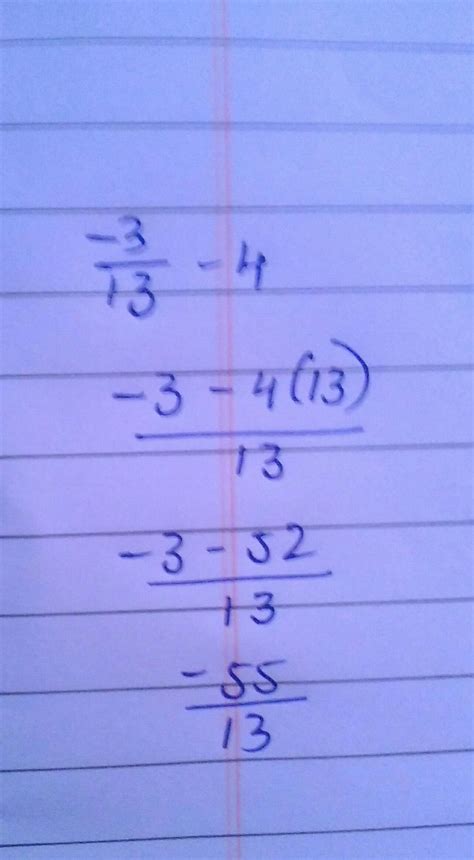 -3/13 - 4
-3 - 4(13)/13
-3 - 52/13
-55/13